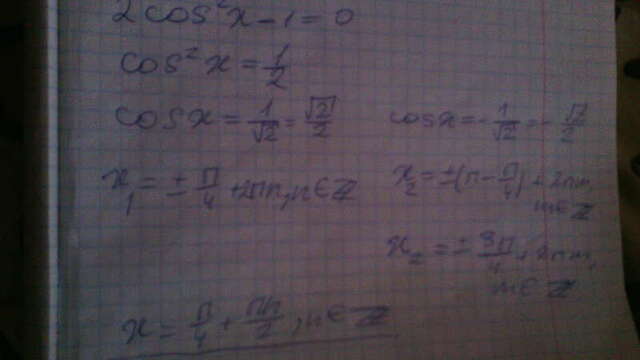 2cos²x-1=0
cos²x=1/2
cosx=1/√2=√2/2
cosx=-1/√2=-√2/2
x₁=±π/4+2πn, n∈Z
x₂=±(π-π/4)+2πm,
m∈Z
x₂=±3π/4+2πm,
m∈Z
x=π/4+πn/2, n∈Z